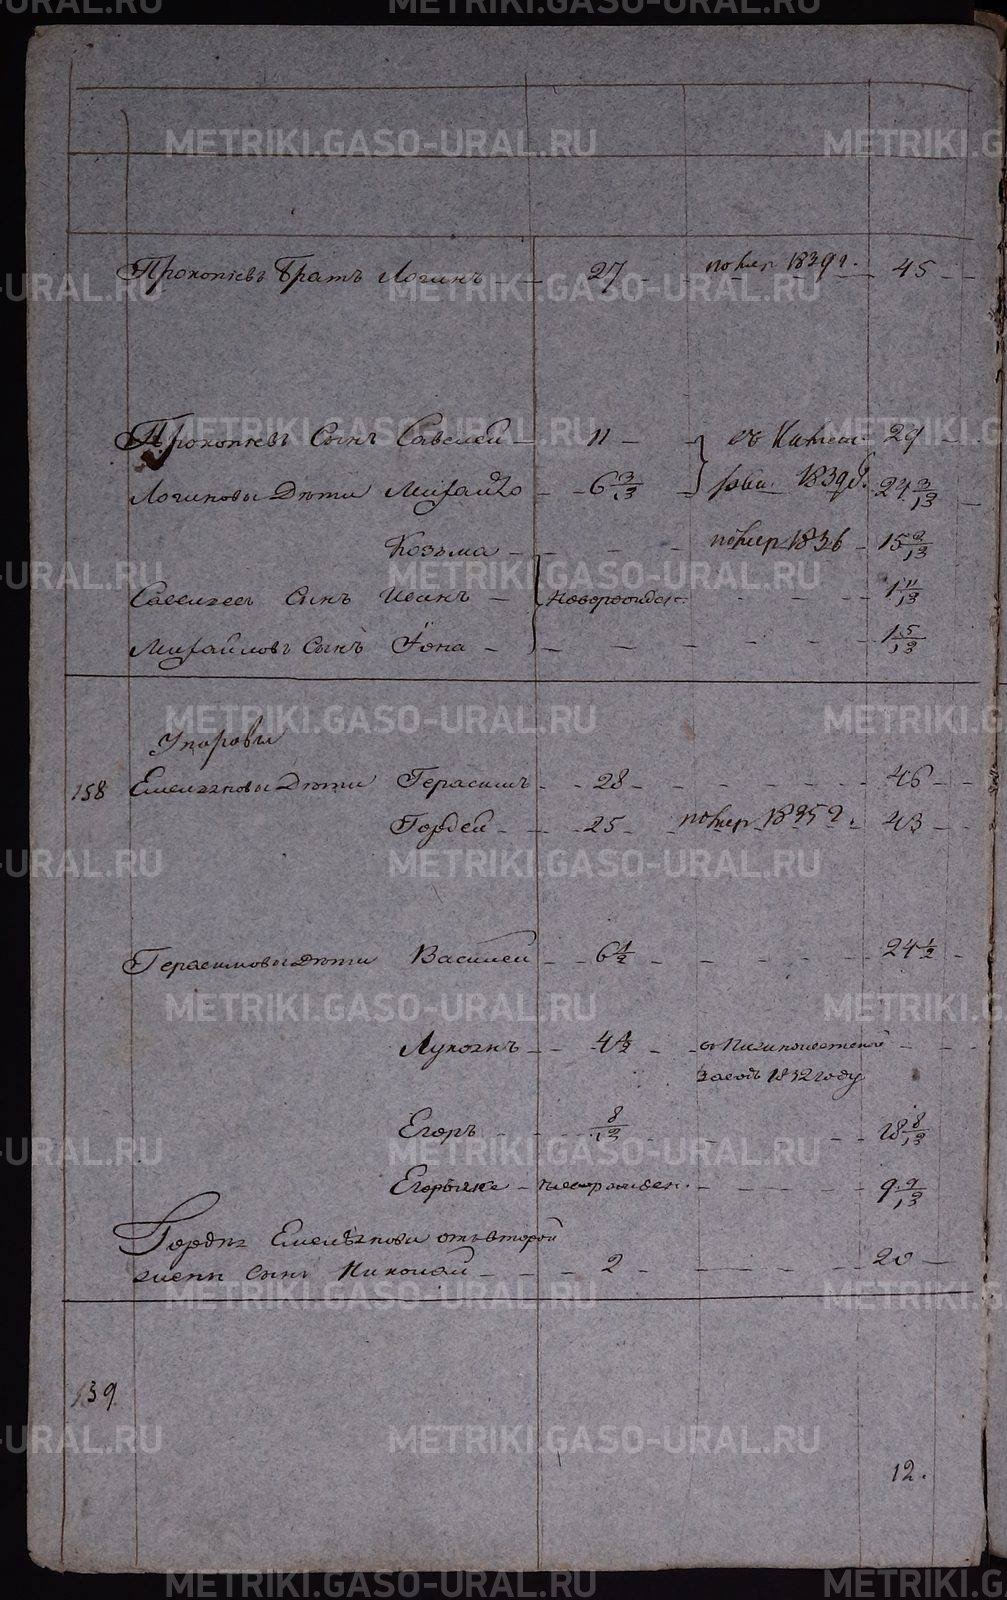 Прокопьевъ братъ Логинъ — 27 — помер 1839 г. — 45
Прокопьевъ сынъ Савелей — 11 — 29
Логиновы дѣти Михайло — 6 3/13 — 1839 — 24 3/13
Козьма — помер 1836 — 15
Савельевъ сынъ Иванъ — новорожден. — 1 11/13
Михайловъ сынъ Іона — 1 5/13
Упоровы
158 Емельяновы дѣти Герасимъ — 28 — 46
Гордей — 25 — помер 1835 г. — 43
Герасимовы дѣти Василей — 6 1/2 — 24 1/2
Лукоянъ — 4 1/2
заводъ 1832 году
Егоръ — 8/13 — 18 8/13
— новорожден. — 9 9/13
Гордея Емельянова отъ второй
жены сынъ Николай — 2 — 20
139
12.
METRIKI.GASO-URAL.RU